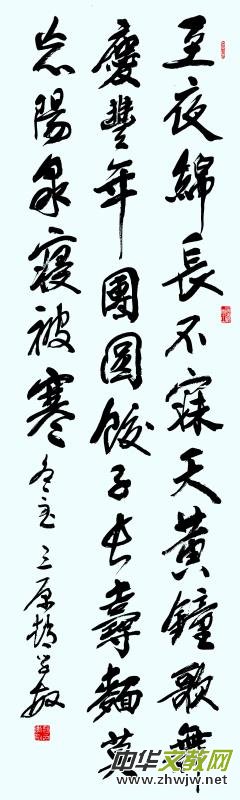 至夜綿長不寐天黃鐘歌舞
慶豐年團圓餃子長壽麵莫
忘陽泉寢被寒 冬至 三原
中华文教网
www.zhwjw.net